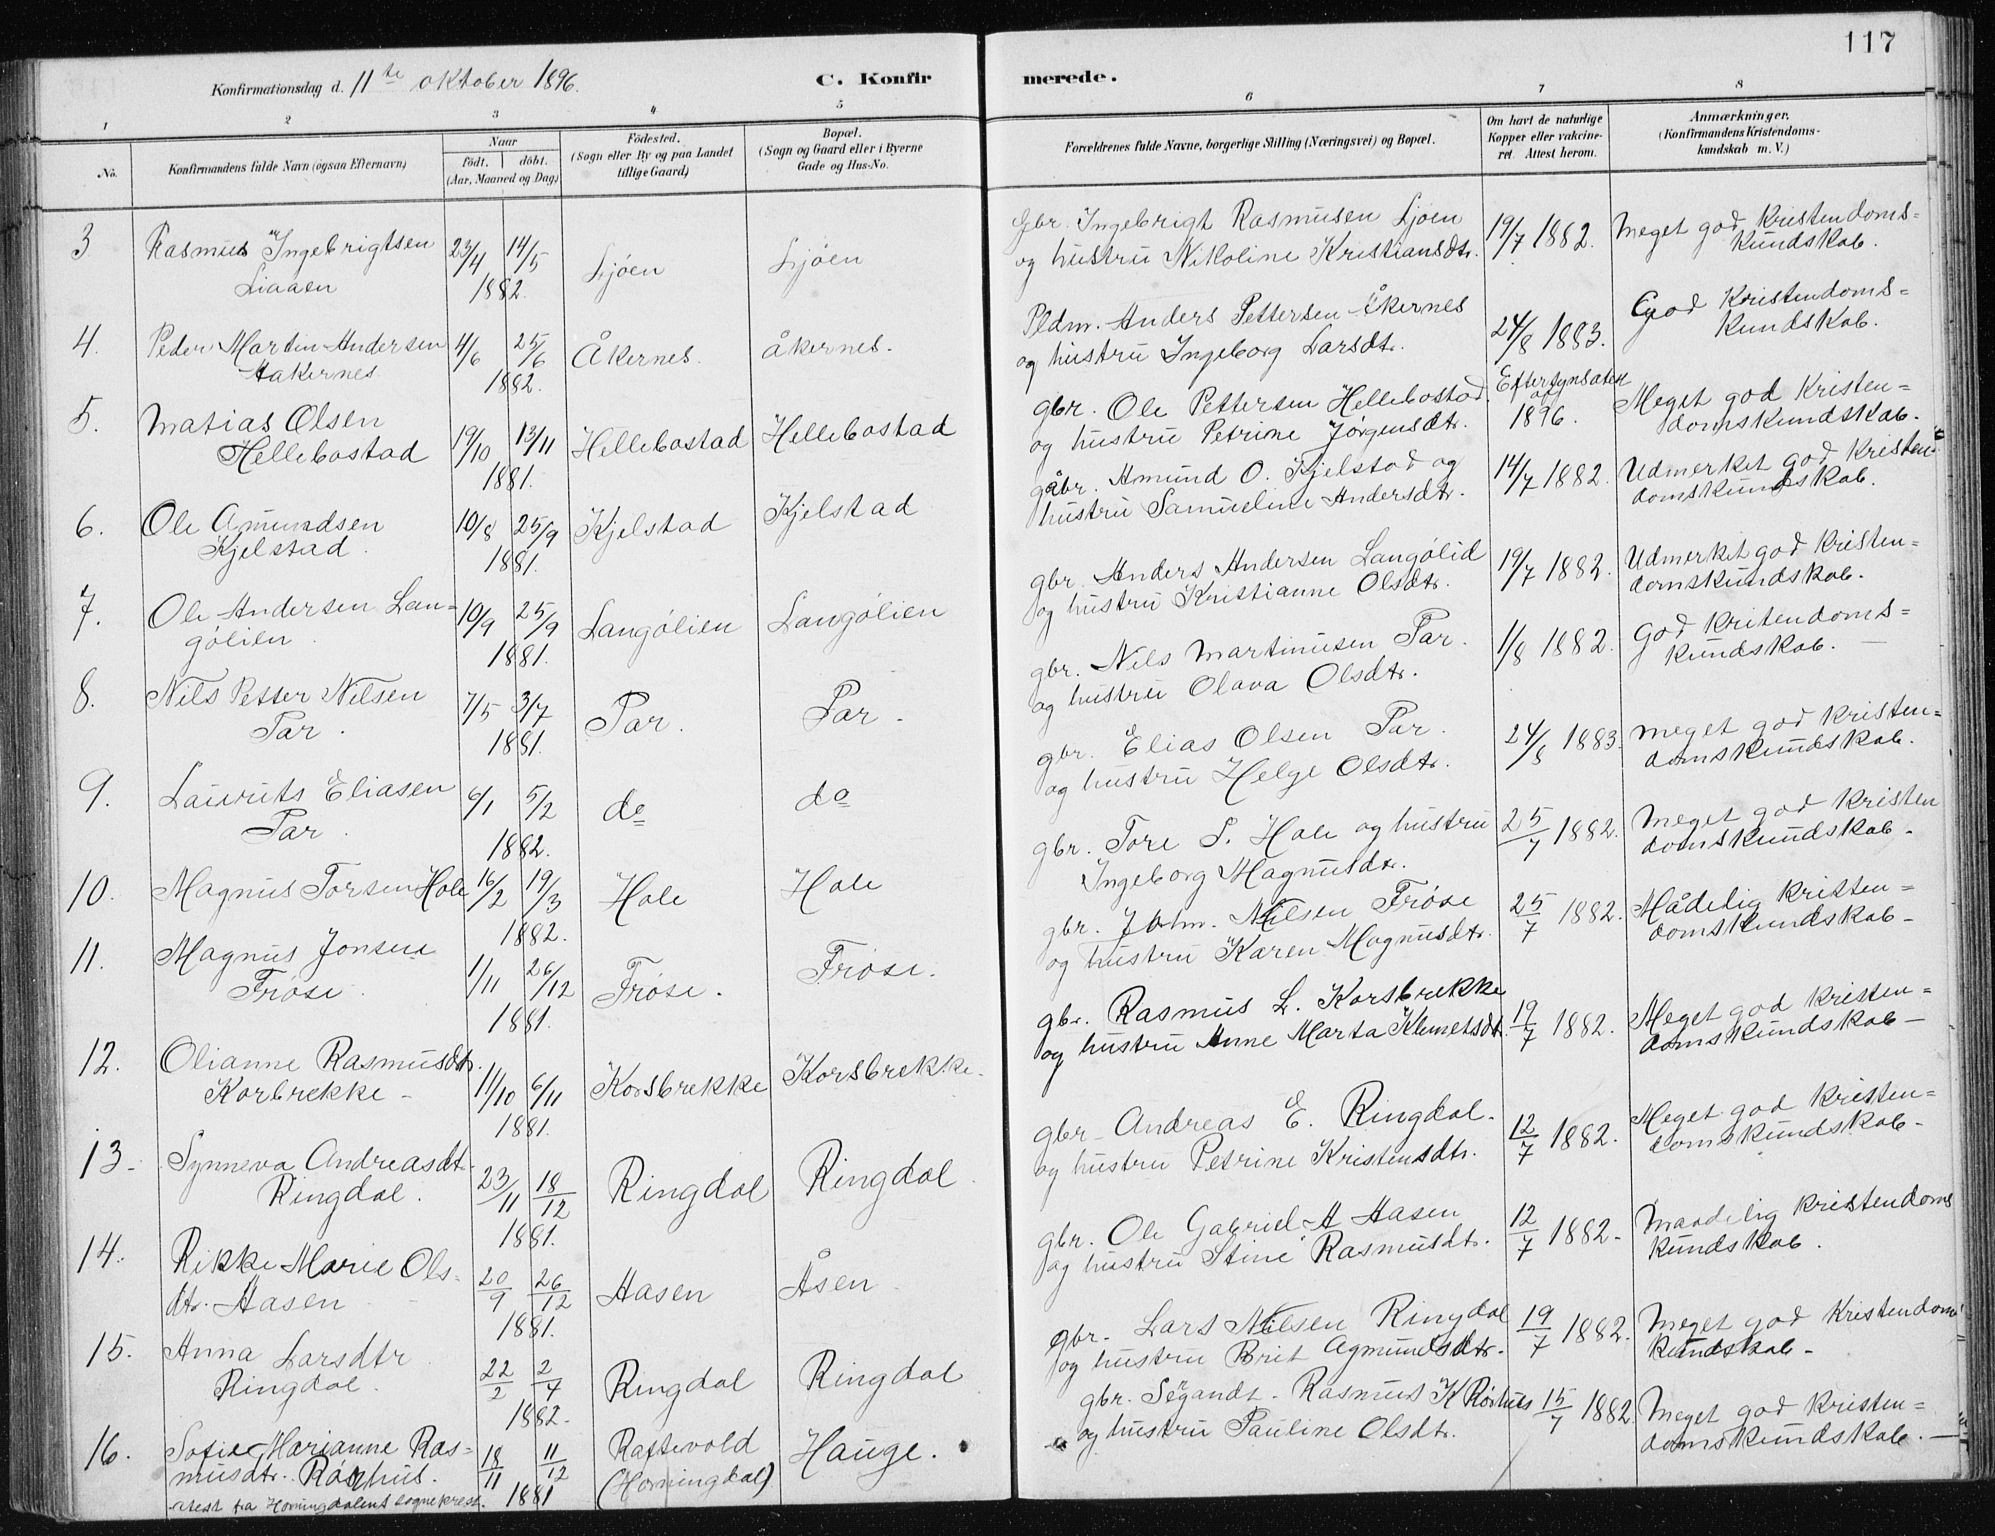 117
Konfirmationsdag d. 11te oktober 1896.
C. Konfirmerede.
1 2 3 4 5 6 7 8
No. Konfirmandens fulde Navn (ogsaa Efternavn)
Naar
født. døbt.
(Aar, Maaned og Dag)
Fødested.
(Sogn eller By og paa Landet
tillige Gaard)
Bopæl.
(Sogn og Gaard eller i Byerne
Gade og Hus-No.
Forældrenes fulde Navne, borgerlige Stilling (Næringsvei) og Bopæl.
Om havt de naturlige
Kopper eller vakcine-
ret. Attest herom.
Anmærkninger.
(Konfirmandens Kristendoms-
kundskab m. V.)
3 Rasmus Ingebrigtsen 23/4 14/5 Ljöen Ljöen Gbr. Ingebrigt Rasmusen Ljöen 19/7 1882. Meget god Kristendoms=
Liaaen 1882. og hustru Nikoline Kristiansdtr. kundskab.
4. Peder Martin Andersen 4/6 25/6 Åkernes. Åkernes. Pldm. Anders Pettersen Åkernes 24/8 1883. God Kristendoms=
Aakernes. 1882. og hustru Ingeborg Larsdtr. Kundskab.
5. Matias Olsen 19/10 13/11 Hellebostad Hellebostad gbr. Ole Pettersen Hellebostad. Eftersynsatest af Meget god Kristen=
Hellebostad 1881. og hustru Petrine Jörgensdtr. 1896. domskundskab.
6. Ole Amundsen 10/8 25/9 Kjelstad Kjelstad gåbr. Amund O. Kjelstad og 14/7 1882. Udmerket god Kristen=
Kjelstad. 1881. hustru Samueline Andersdtr. domskundskab.
7. Ole Andersen Lan= 10/9 25/9 Langölien Langölien gbr. Anders Andersen Langölid 19/7 1882. Udmerket god Kristen=
gölien. 1881. og hustru Kristianne Olsdtr. domskundskab.
8. Nils Petter Nilsen 7/5 3/7 Par. Par. gbr. Nils Martinusen Par. 1/8 1882. God Kritendoms=
Par. 1881. og hustru Olava Olsdtr. kundskab.
9. Laurits Eliasen 6/1 5/2 do do gbr. Elias Olsen Par. 24/8 1883. Meget god Kristen=
Par. 1882. og hustru Helge Olsdtr. domskundskab.
10. Magnus Torsen Hole 16/2 19/3 Hole Hole gbr. Tore S. Hole og hustru 25/7 1882. Meget god Kristen
1882. Ingeborg Magnusdtr. domskundskab.
11. Magnus Jonsen 1/11 26/12 Fröse. Fröse. gbr. John. Nilsen Fröse 25/7 1882. Mådelig Kristen=
Fröse. 1881. og hustru Karen Magnusdtr. domskundskab.
12. Olianne Rasmusdtr. 11/10 6/11 Korsbrekke Korsbrekke. gbr. Rasmus L. Korsbrekke 19/7 1882. Meget god Kristen=
Korbrekke 1881. og hustru Anne Marta Klemetsdtr. domskundskab
13. Synneva Andreasdtr. 23/11 18/12 Ringdal Ringdal. gbr. Andreas E. Ringdal. 12/7 1882. Meget god Kristen=
Ringdal. 1881. og hustru Petrine Kristensdtr. domskundskab.
14. Rikke Marie Ols- 20/9 26/12 Aasen Åsen gbr. Ole Gabriel A Aasen 12/7 1882. Maadelig Kristendoms
dtr. Aasen 1881. og hustru Stine Rasmusdtr. kundskab.
15. Anna Larsdtr 22/2 2/4 Ringdal Ringdal gbr. Lars Nilsen Ringdal 19/7 1882. Meget god Kristendoms
Ringdal. 1882. og hustru Brit Agmundsdtr. kundskab.
16. Sofie Marianne Ras= 18/11 11/12 Raftevold Hauge. gbr. Rasmus K Röshus 15/7 1882. Meget god Kristen=
musdtr. Röshus. (Horningdal) og hustru Pauline Olsdtr. domskundskab.
atest fra Horningdalens sogneprest. 1881